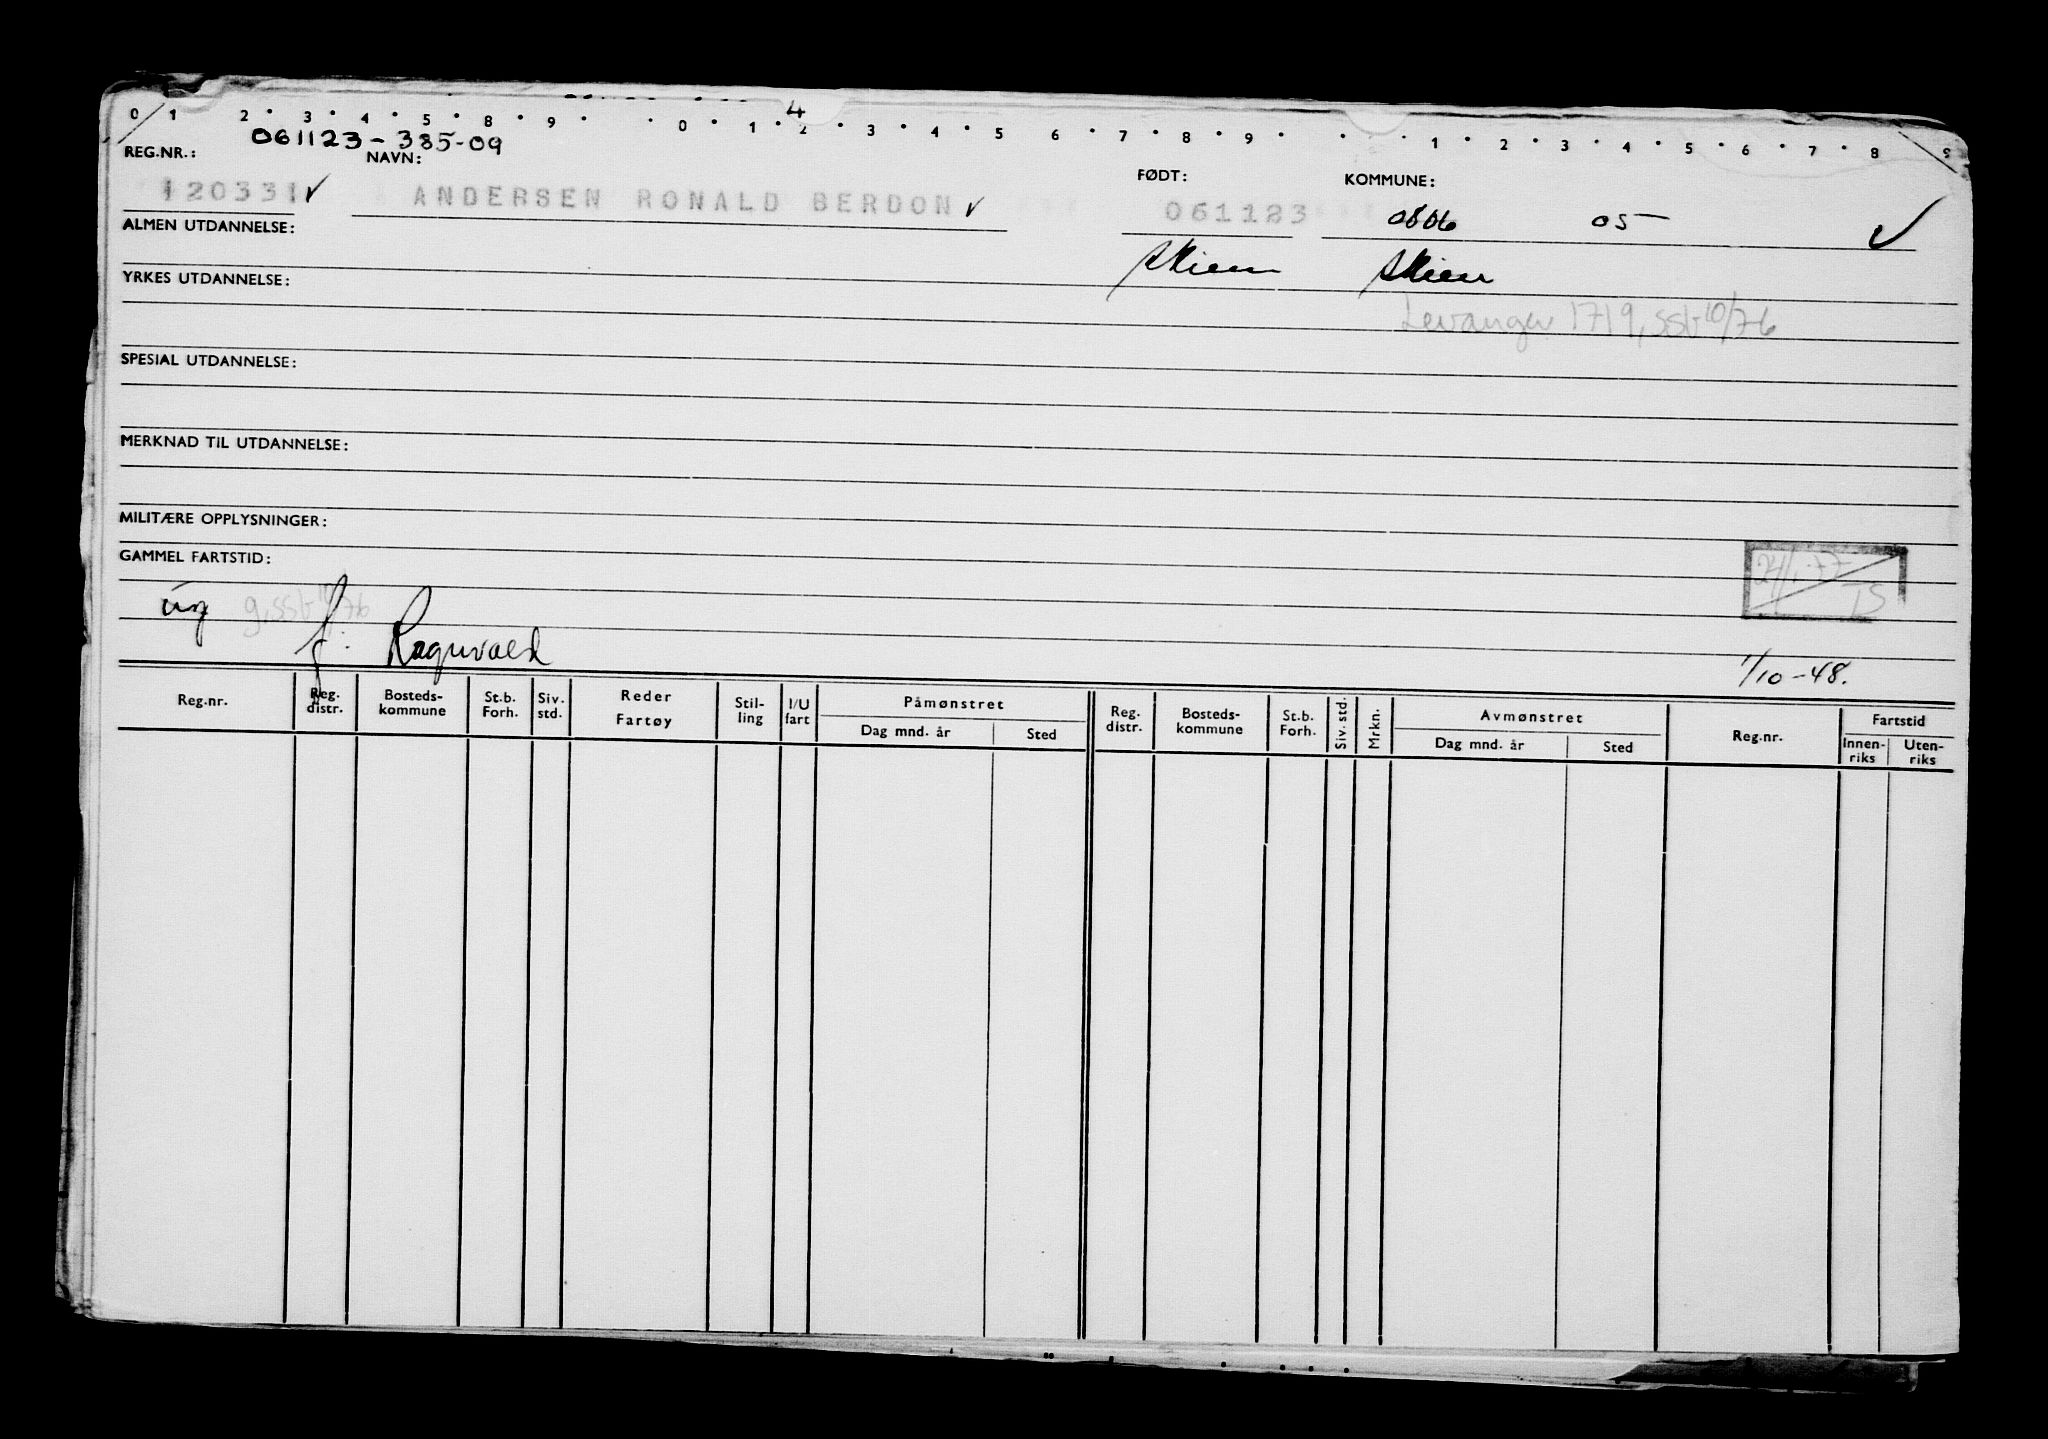 0 1 2 3 4 5 8 9 0 1 2 3 4 5 6 7 8 9 1 2 3 4 5 6 7 8 9
4
061123-385-09
REG.NR.: NAVN: FØDT: KOMMUNE:
120331 ✓ ANDERSEN RONALD BERDON ✓ 061123 0806 05 ✓
ALMEN UTDANNELSE:
Skien Skien
YRKES UTDANNELSE:
Levanger 1719, sst 10/76
SPESIAL UTDANNELSE:
MERKNAD TIL UTDANNELSE:
MILITÆRE OPPLYSNINGER:
GAMMEL FARTSTID:
24/1-77
TS
ug g, sst 10/76
f: Ragnvald
1/10-48.
Reg.nr. Reg. distr. Bosteds-kommune St.b. Forh. Siv. std. Reder Fartøy Stil-ling I/U fart Påmønstret Dag mnd. år Sted Reg. distr. Bosteds-kommune St.b. Forh. Siv. std. Mrkn. Avmønstret Dag mnd. år Sted Reg.nr. Fartstid Innen-riks Uten-riks